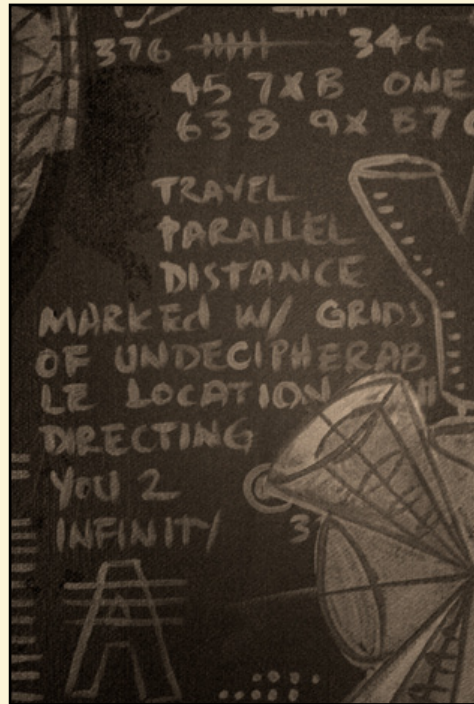 376 346
45 7XB ONE
638 9X B7
TRAVEL
PARALLEL
DISTANCE
MARKEd W/ GRIDS
OF UNDECIPHERAB
LE LOCATION
DIRECTING
YOU 2
INFINITY
3